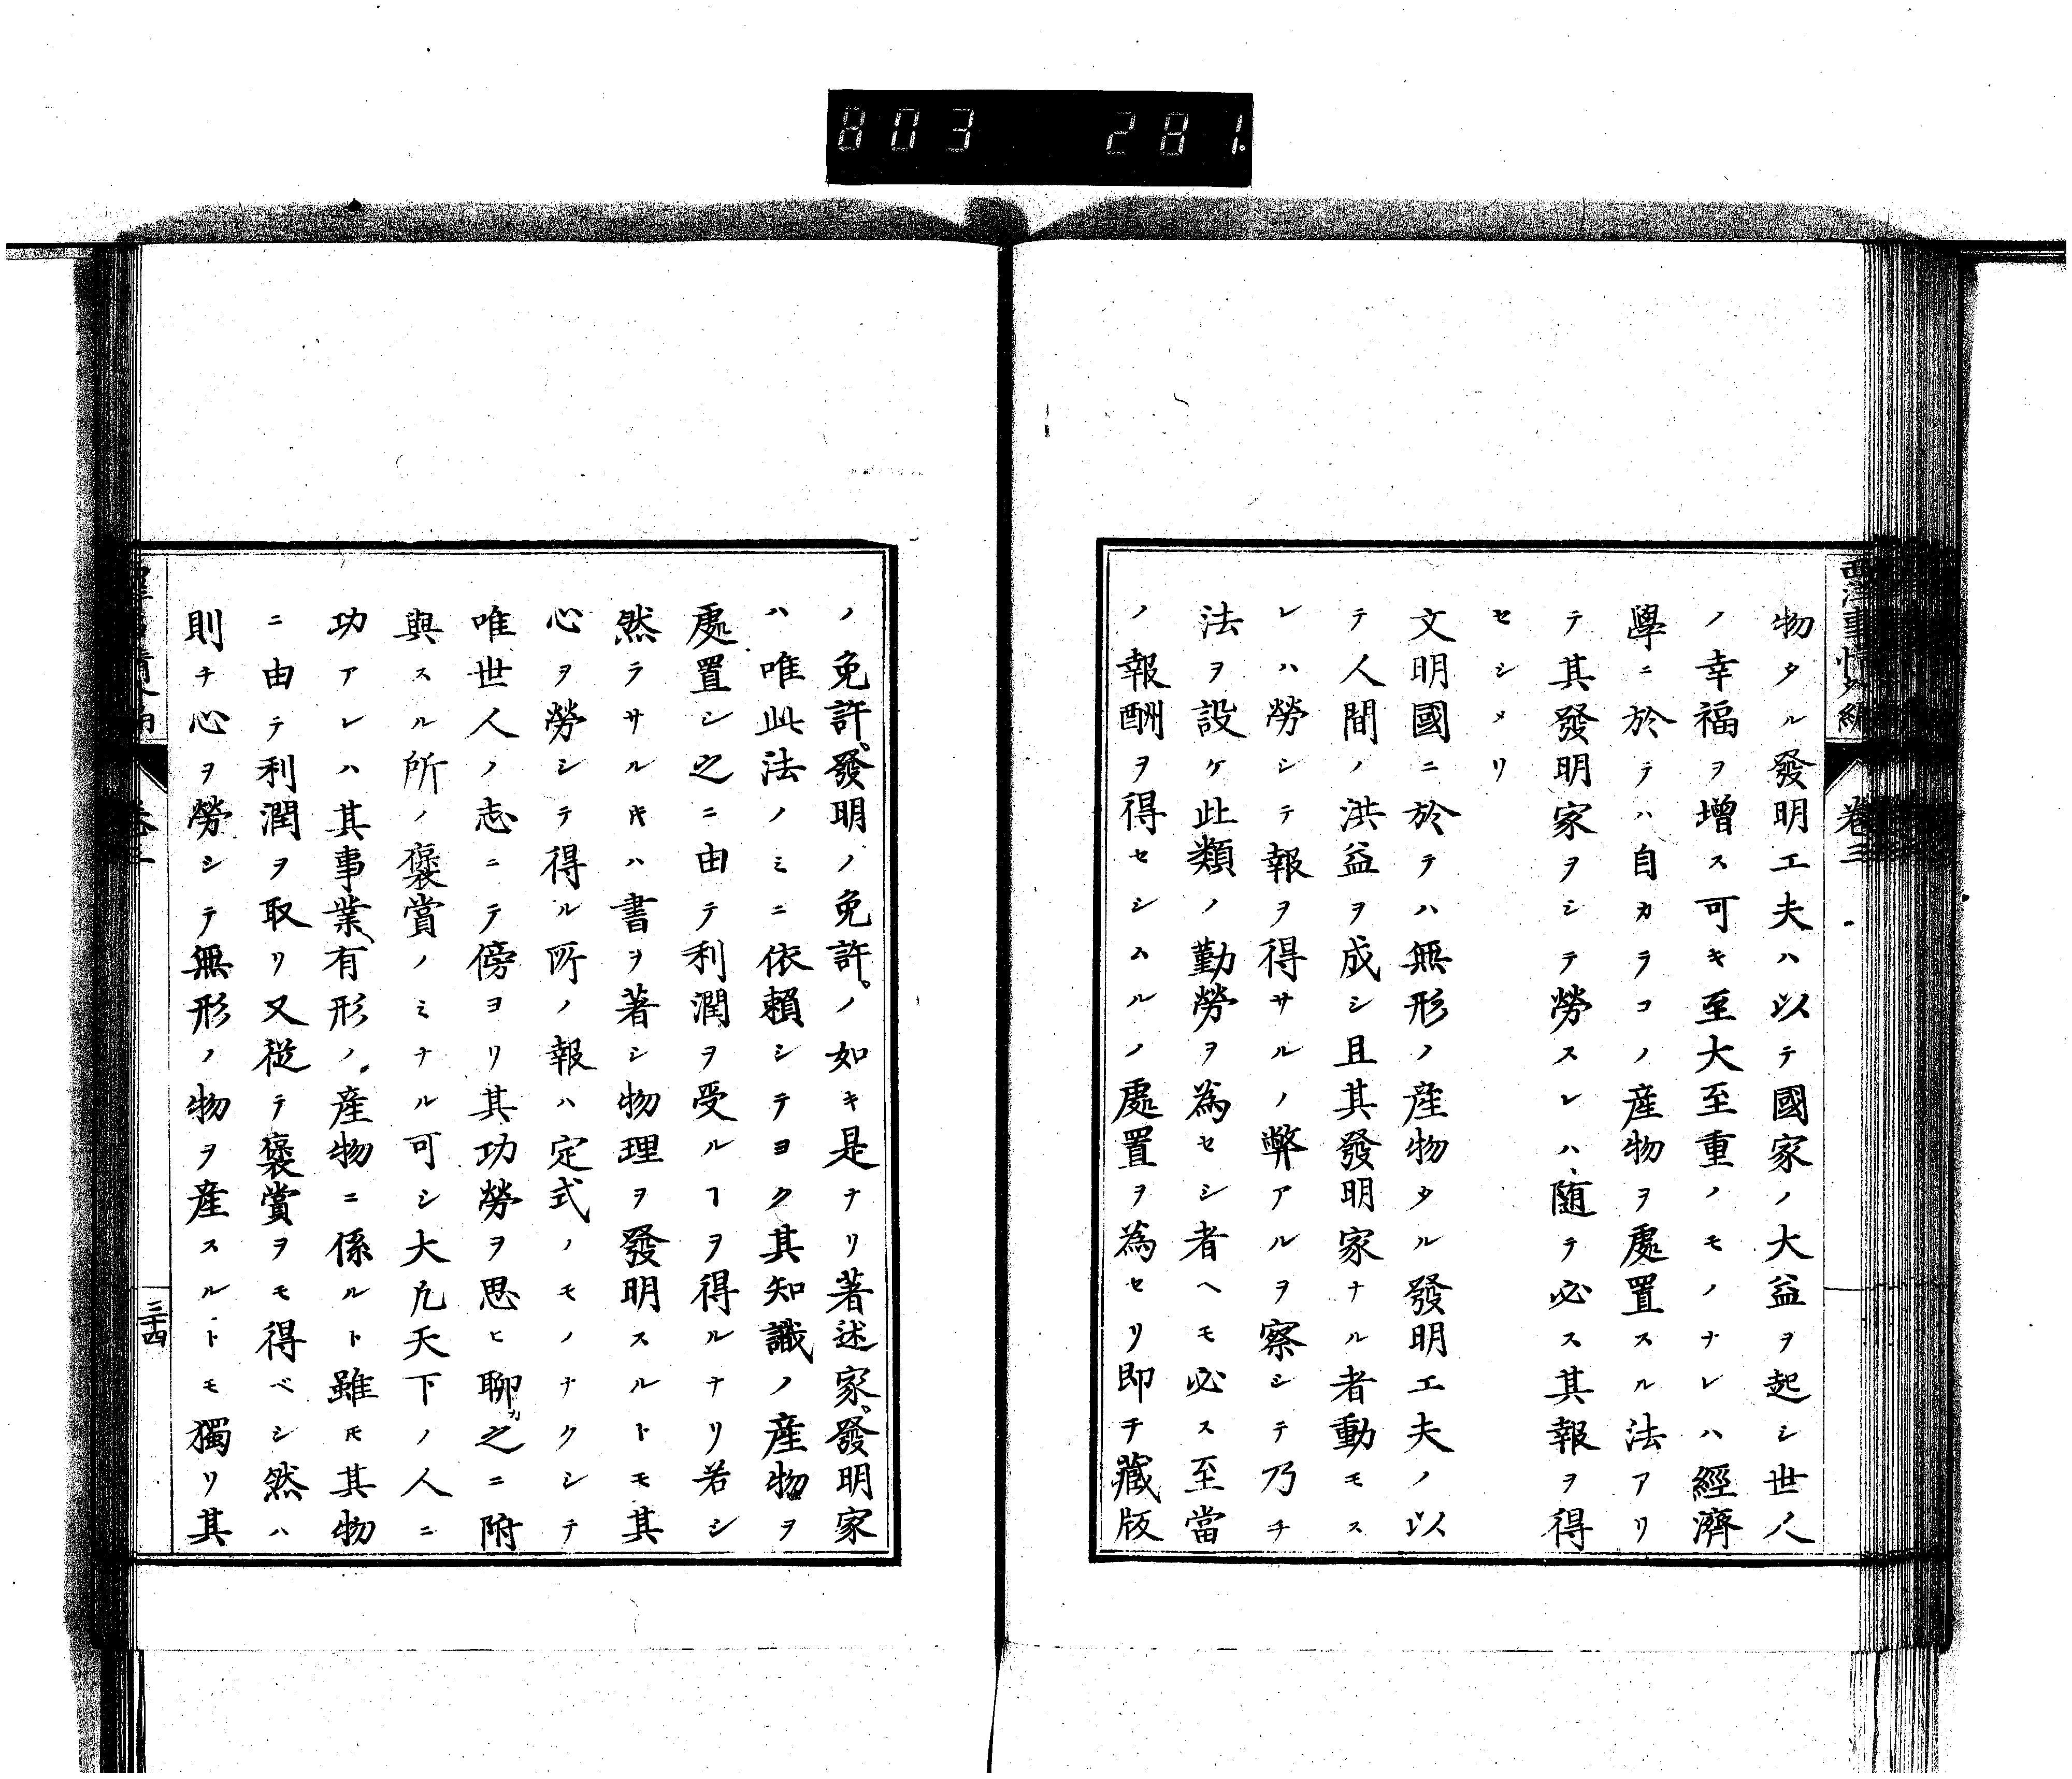 803 281.
西洋事情外編 卷三
物タル發明工夫ハ以テ國家ノ大益ヲ起シ世人
ノ幸福ヲ增ス可キ至大至重ノモノナレハ經濟
學ニ於テハ自カラコノ産物ヲ處置スル法アリ
テ其發明家ヲシテ勞スレハ隨テ必ス其報ヲ得
セシメリ
文明國ニ於テハ無形ノ産物タル發明工夫ノ以
テ人間ノ洪益ヲ成シ且其發明家ナル者動モス
レハ勞シテ報ヲ得サルノ弊アルヲ察シテ乃チ
法ヲ設ケ此類ノ勤勞ヲ為セシ者ヘモ必ス至當
ノ報酬ヲ得セシムルノ處置ヲ為セリ即チ藏版
ノ免許、發明ノ免許。ノ如キ是ナリ著述家、發明家
ハ唯此法ノミニ依賴シテヨク其知識ノ産物ヲ
處置シ之ニ由テ利潤ヲ受ルヿヲ得ルナリ若シ
然ラサル𪜈ハ書ヲ著シ物理ヲ發明スルトモ其
心ヲ勞シテ得ル所ノ報ハ定式ノモノナクシテ
唯世人ノ志ニテ傍ヨリ其功勞ヲ思ヒ聊カ之ニ附
與スル所ノ褒賞ノミナル可シ大凡天下ノ人ニ
功アレハ其事業、有形ノ。産物ニ係ルト雖𪜈其物
ニ由テ利潤ヲ取リ又從テ褒賞ヲモ得ベシ然ハ
則チ心ヲ勞シテ無形ノ物ヲ産スルトモ獨リ其
三十四